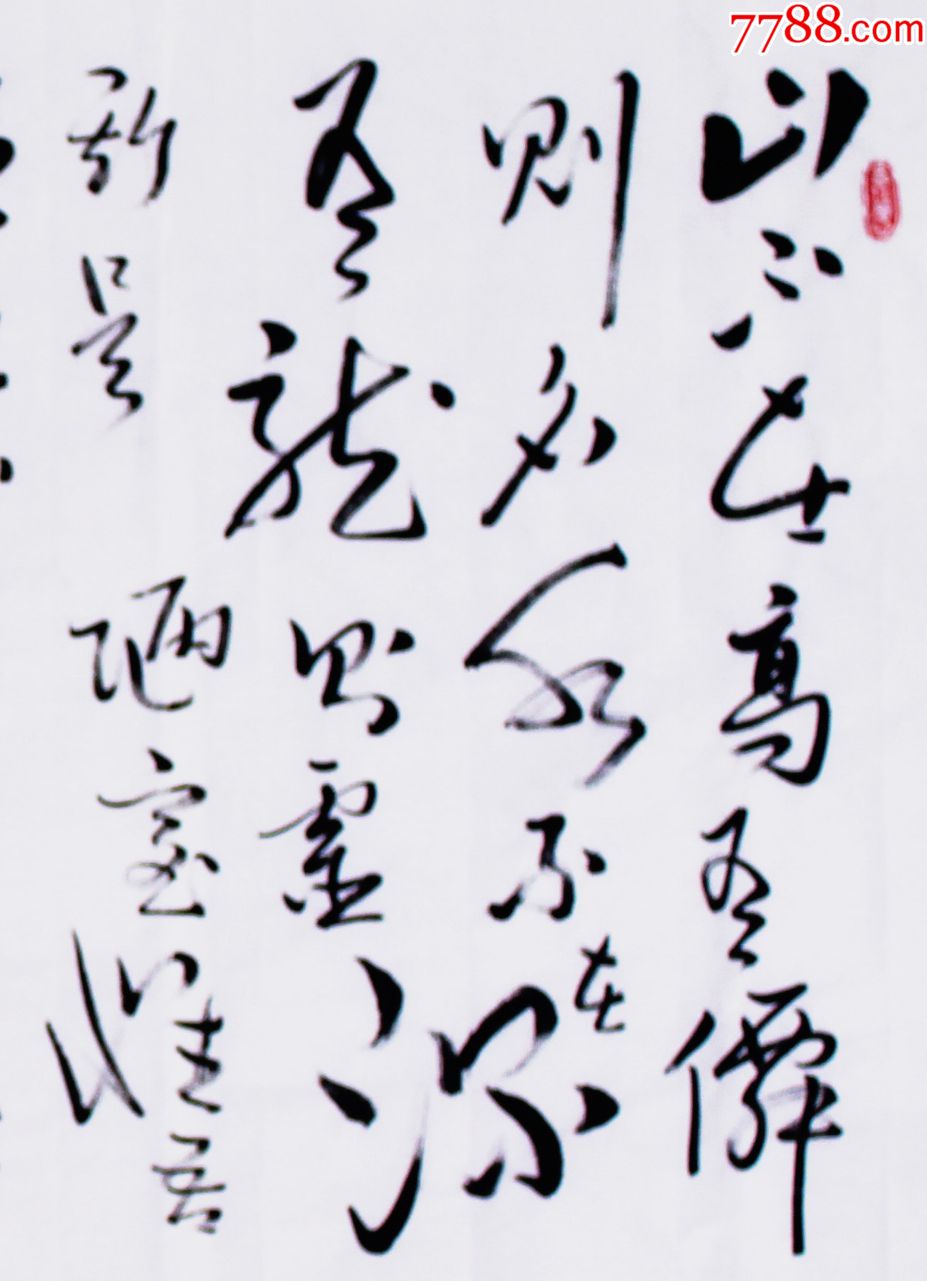 7788.com
山不在高有僊
则名水不在深
有龙则灵
斯是陋室惟吾